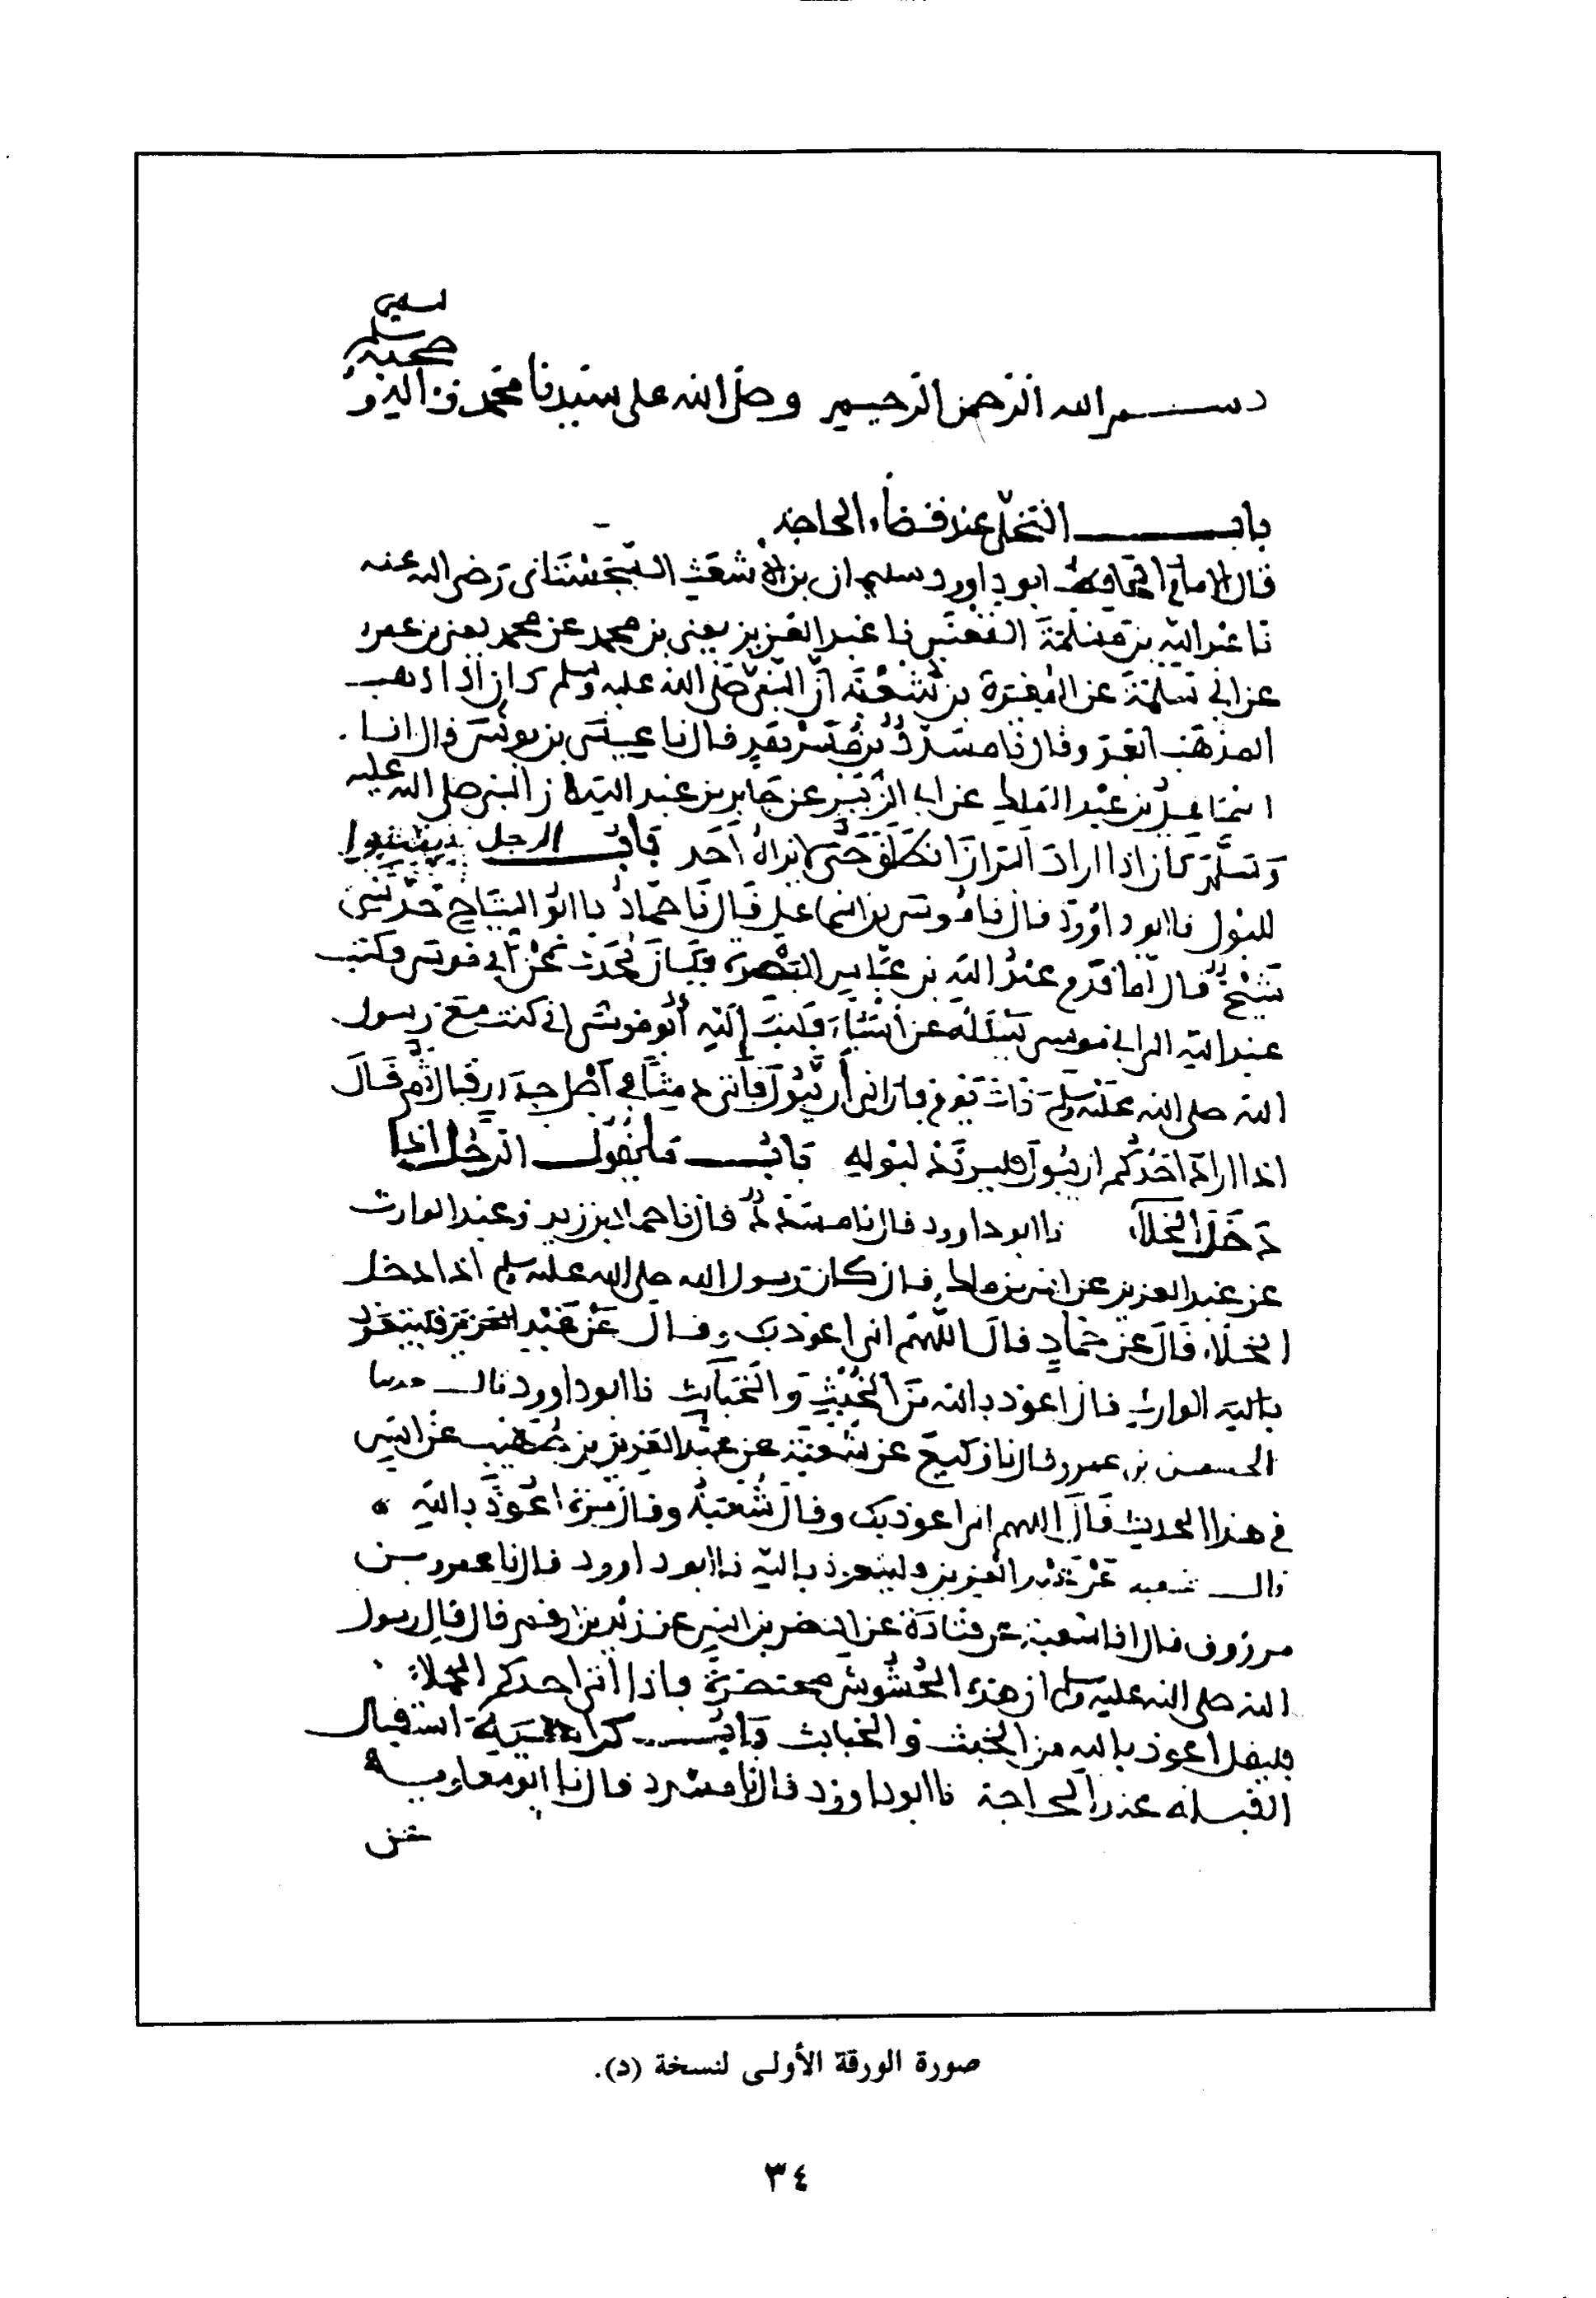 وصحبه وسلم
بسم الله الرحمن الرحيم وصلى الله على سيدنا محمد وآله
باب التخلي عند قضاء الحاجة
قال الإمام الحافظ أبو داود سليمان بن الأشعث السجستاني رضي الله عنه
نا عبد الله بن مسلمة القعنبي نا عبد العزيز يعني بن محمد عن محمد يعني بن عمرو
عن أبي سلمة عن المغيرة بن شعبة أن النبي صلى الله عليه وسلم كان إذا ذهب
المذهب أبعد وقال نا مسدد بن مسرهد قال نا عيسى بن يونس قال انا
اسماعيل بن عبد الملك عن أبي الزبير عن جابر بن عبد الله أن النبي صلى الله عليه
وسلم كان إذا أراد البراز انطلق حتى لا يراه أحد باب الرجل يتبوأ
للبول نا أبو داود قال نا موسى بن اسماعيل قال نا حماد نا أبو التياح حدثني
شيخ قال لما قدم عبد الله بن عباس البصرة فكان يحدث عن أبي موسى فكتب
عبد الله إلى أبي موسى يسئله عن أشياء فكتب إليه أبو موسى إني كنت مع رسول
الله صلى الله عليه وسلم ذات يوم فأراد أن يبول فأتى دمثا في أصل جدار فبال ثم قال
إذا أراد أحدكم أن يبول فليرتد لبوله باب ما يقول الرجل إذا
دخل الخلاء نا أبو داود قال نا مسدد قال نا حماد بن زيد وعبد الوارث
عن عبد العزيز عن أنس بن مالك قال كان رسول الله صلى الله عليه وسلم إذا دخل
الخلاء قال عن حماد قال اللهم إني أعوذ بك وقال عن عبد العزيز فليتعوذ
بالله الوارث قال أعوذ بالله من الخبث والخبائث نا أبو داود قال حدثنا
الحسن بن عمرو قال نا وكيع عن شعبة عن عبد العزيز بن صهيب عن أنس
في هذا الحديث قال اللهم إني أعوذ بك وقال شعبة وقال مرة أعوذ بالله
قال شعبة عن عبد العزيز وليتعوذ بالله نا أبو داود قال نا عمرو بن
مرزوق قال انا شعبة عن قتادة عن النضر بن أنس عن زيد بن أرقم قال قال رسول
الله صلى الله عليه وسلم إن هذه الحشوش محتضرة فإذا أتى أحدكم الخلاء
فليقل أعوذ بالله من الخبث والخبائث باب كراهية استقبال
القبلة عند الحاجة نا أبو داود قال نا مسدد قال نا أبو معاوية
عن
صورة الورقة الأولى لنسخة (د).
٣٤